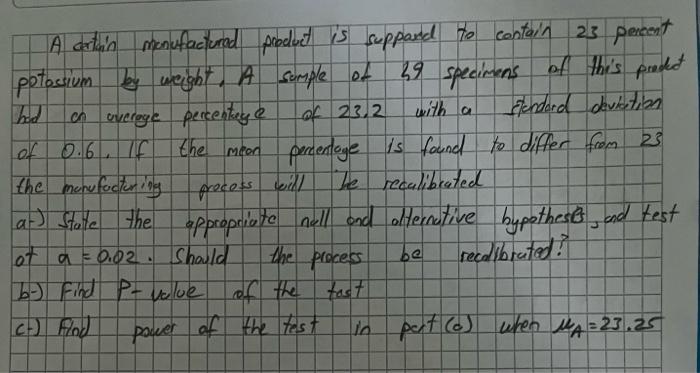 A certain manufactured product is supposed to contain 23 percent
potassium by weight. A sample of 29 specimens of this product
had an average percentage of 23.2 with a standard deviation
of 0.6. If the mean percentage is found to differ from 23
the manufacturing process will be recalibrated
a-) State the appropriate null and alternative hypotheses, and test
at a = 0.02. Should the process be recalibrated?
b-) Find P-value of the test
c-) Find power of the test in part (a) when μA = 23.25